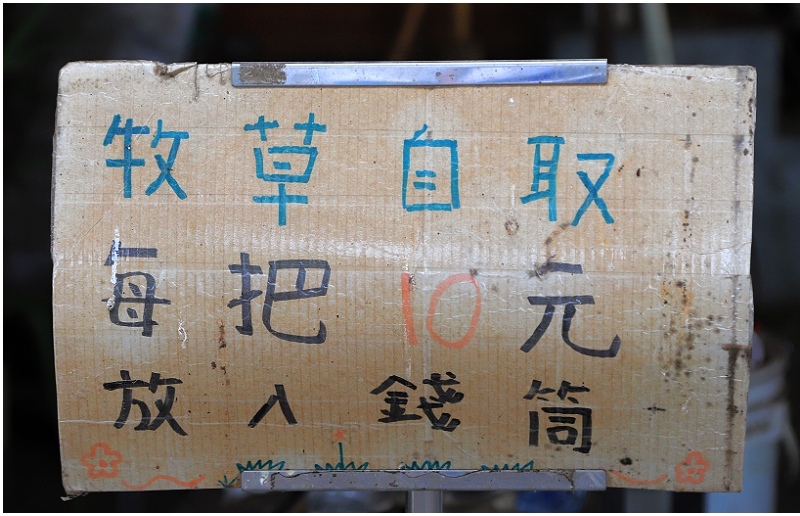 牧草自取
每把10元
放入錢筒